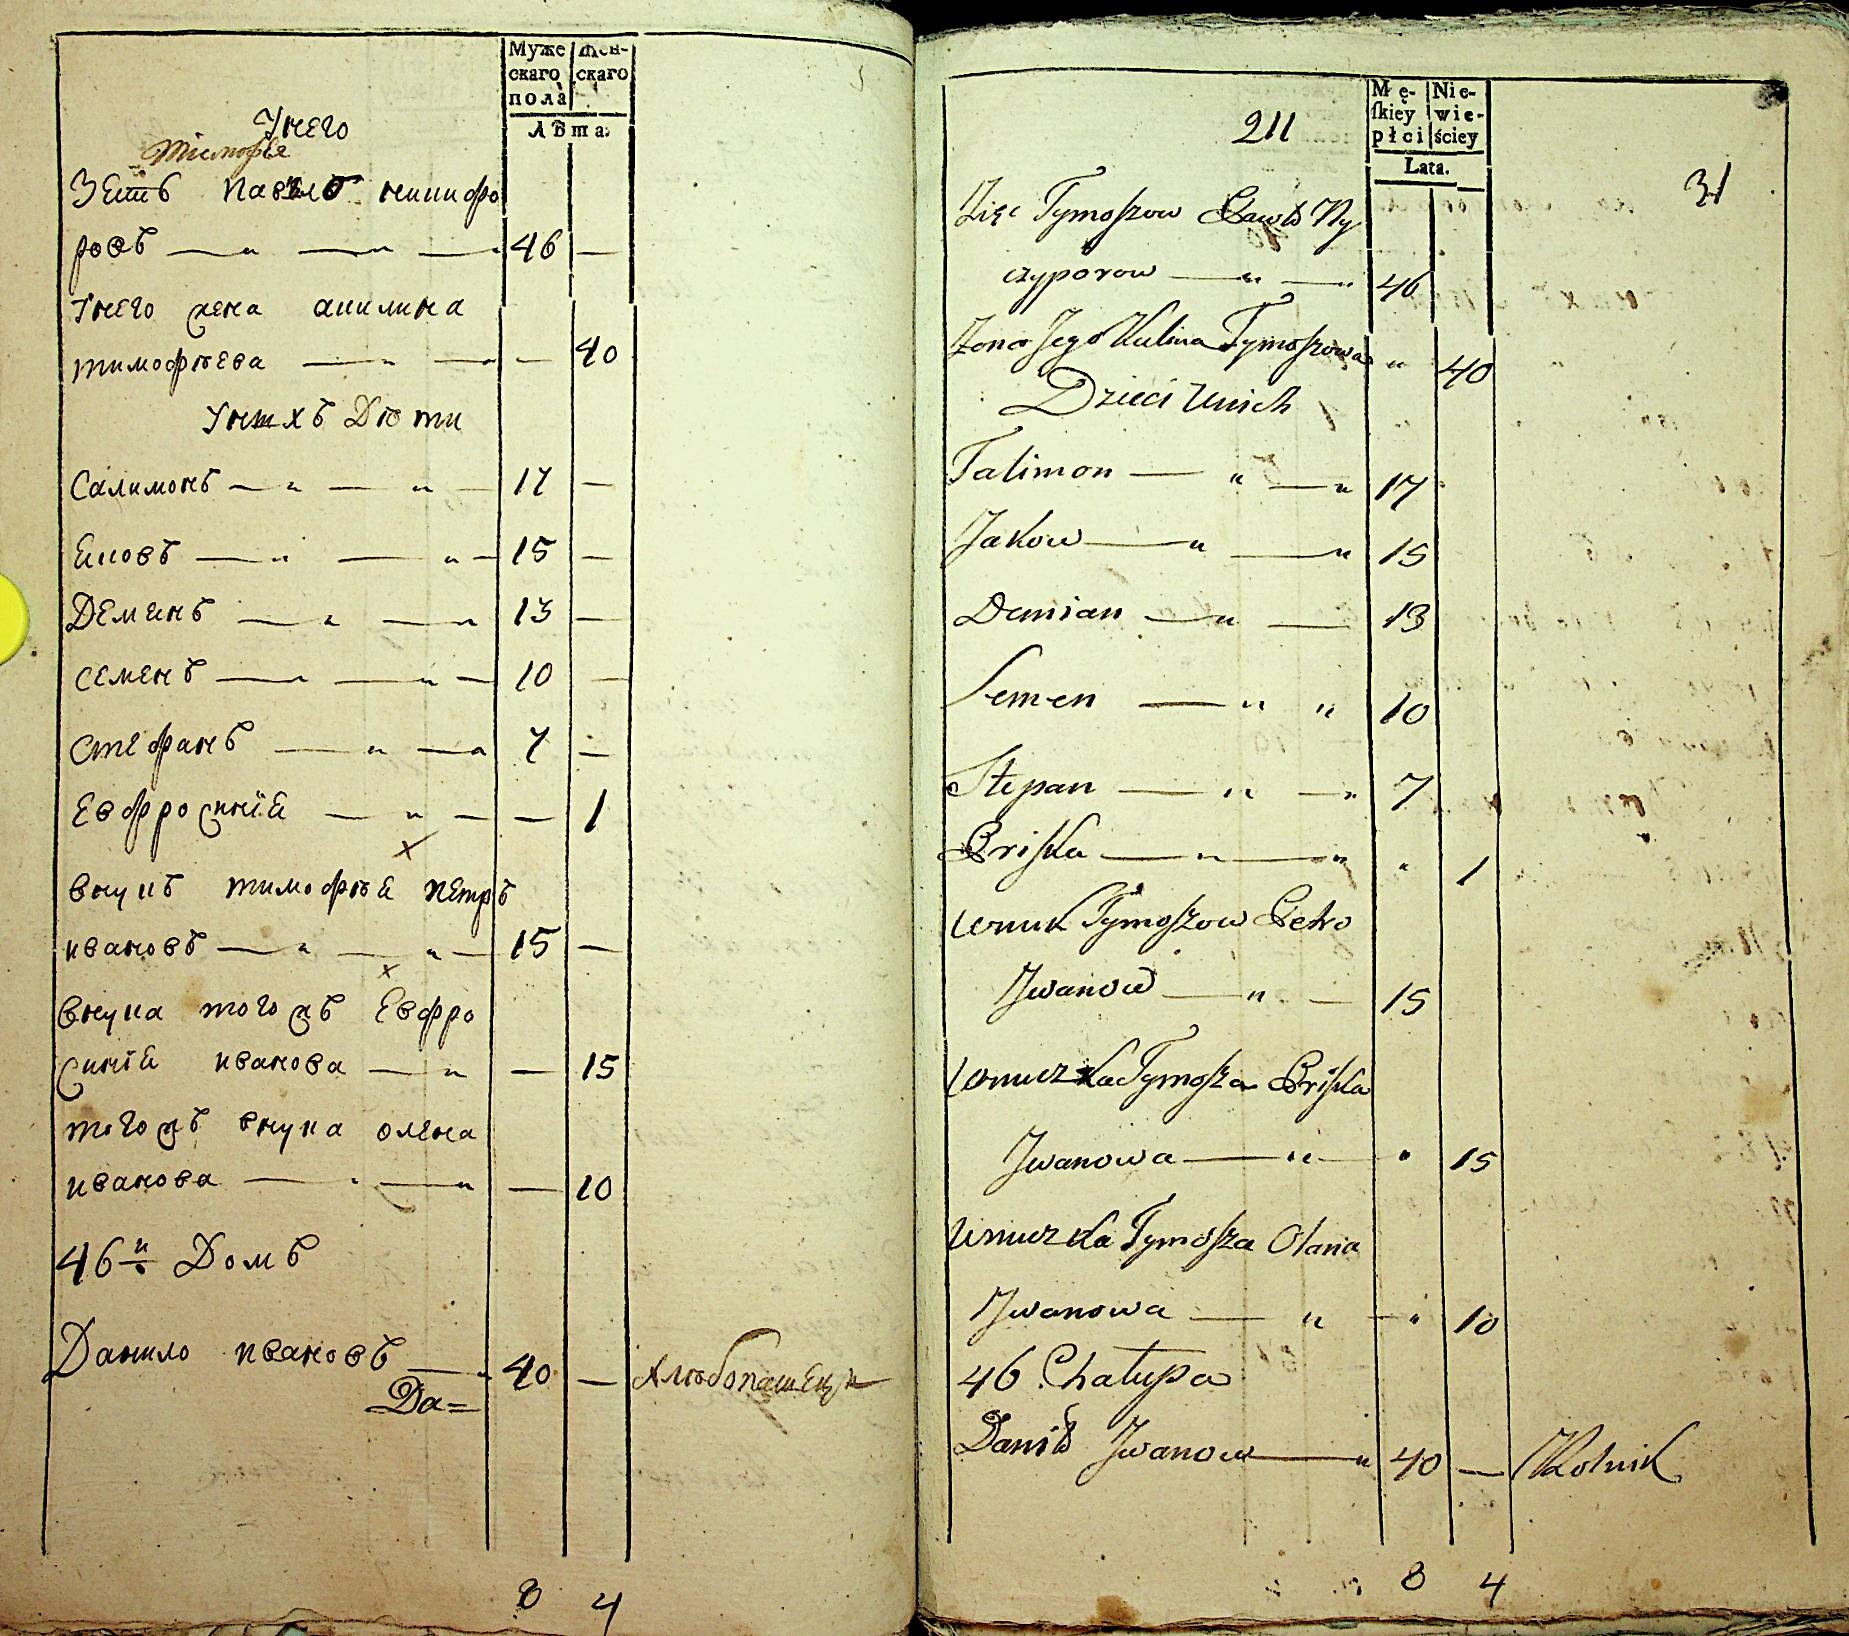 Муже
скаго
пола
Жен-
скаго
Лѣта
Унего
Тимофѣя
Зеть Павло ничифо
ровъ 46 —
Унего жена акилина
тимофѣева — 40
Унихъ Дѣти
Салимонъ 17 —
Яковъ 15 —
Демянъ 13 —
семенъ 10 —
стефанъ 7 —
Евфросинія — 1
внукъ тимофѣя петръ
ивановъ 15 —
внука тогожъ Евфро
синія иванова — 15
тогожъ внука олена
иванова — 10
46й Домъ
Данило ивановъ 40 —
Да=
8 4
211
Mę-
ſkiey
płci
Nie-
wie-
ściey
Lata.
31
Zięc Tymoszow Pawło Ny
czyporow 46
Zona Jego Kulina Tymoszowa " 40
Dzieci Unich
Talimon 17
Jakow 15
Damian 13
Semen 10
Stepan 7
Priska " 1
Wnuk Tymoszow Petro
Jwanow 15
Wnuczka Tymosza Priska
Jwanowa " 15
Wnuczka Tymosza Olana
Jwanowa " 10
46 Chałupa
Daniło Jwanow 40 — Rolnik
8 4